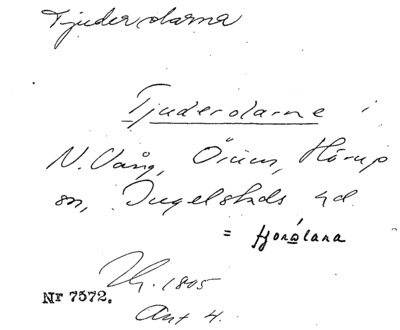 Tjuderolarna
Tjuderolarne i
N. Vång, Örum, Hörup
sn, Ingelstads hd.
= tjorolana
Th. 1805
Nr 7572.
Ant 4.